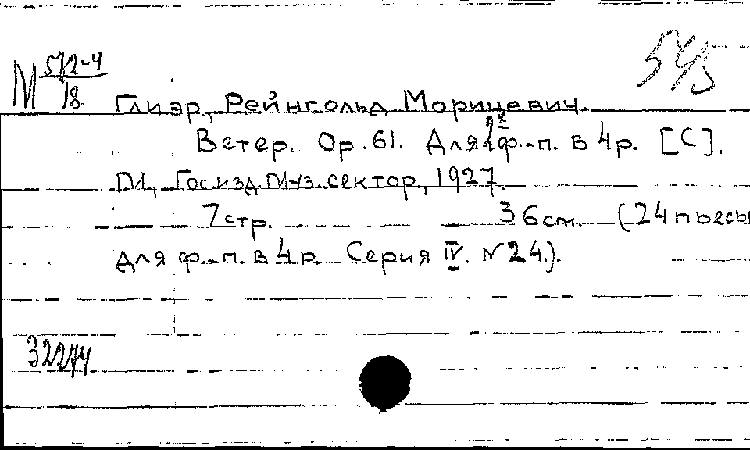 М 572-4/18
545
Глиэр, Рейнгольд Морицевич.
Ветер. Ор. 61. Для 2 ф.-п. в 4 р. [С].
М., Госизд. Муз. сектор, 1927.
7 стр. 36 см. (24 пьесы
для ф.-п. в 4 р. Серия IV. N 24.).
32274